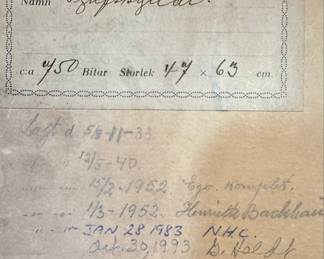 Namn
c:a 750 Bitar Storlek 47 × 63 cm.
Lagt d. 5/8-11-33
12/5-40
15/2-1952. Ego. komplet.
1/3-1952. Henriette Backhaus
" " " JAN 28 1983 N.H.C.
Dec. 30, 1993 D. Holdt